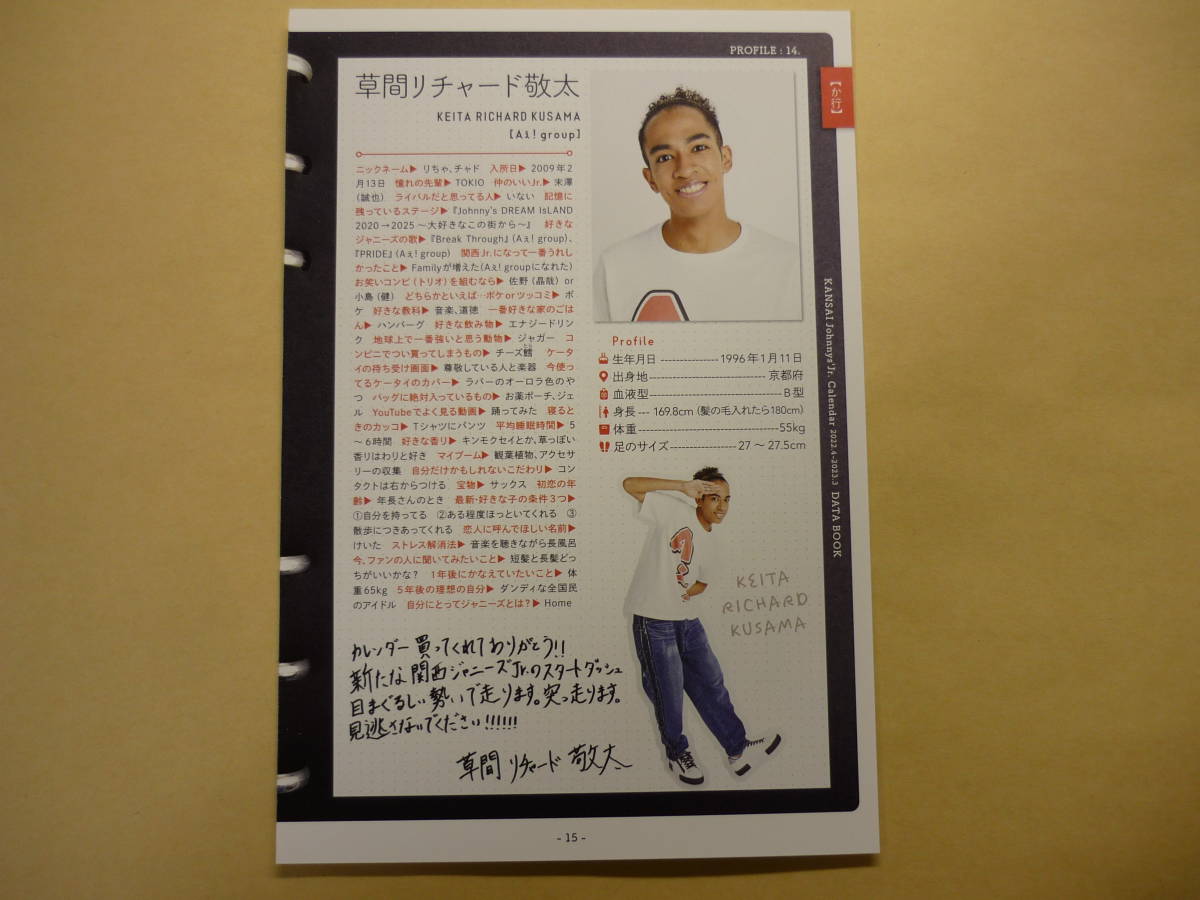 PROFILE : 14.
【か行】
草間リチャード敬太
KEITA RICHARD KUSAMA
[Aぇ! group]
ニックネーム▶ りちゃ、チャド 入所日▶ 2009年2
月13日 憧れの先輩▶ TOKIO 仲のいいJr.▶ 末澤
(誠也) ライバルだと思ってる人▶ いない 記憶に
残っているステージ▶『Johnny's DREAM IsLAND
2020→2025 〜大好きなこの街から〜』 好きな
ジャニーズの歌▶『Break Through』(Aぇ! group)、
『PRIDE』(Aぇ! group) 関西Jr.になって一番うれし
かったこと▶ Familyが増えた(Aぇ! groupになれた)
お笑いコンビ(トリオ)を組むなら▶ 佐野(晶哉) or
小島(健) どちらかといえば…ボケorツッコミ▶ ボ
ケ 好きな教科▶ 音楽、道徳 一番好きな家のごは
ん▶ ハンバーグ 好きな飲み物▶ エナジードリン
ク 地球上で一番強いと思う動物▶ ジャガー コ
ンビニでつい買ってしまうもの▶ チーズ鱈 ケータ
イの待ち受け画面▶ 尊敬している人と楽器 今使っ
てるケータイのカバー▶ ラバーのオーロラ色のや
つ バッグに絶対入っているもの▶ お薬ポーチ、ジェ
ル YouTubeでよく見る動画▶ 踊ってみた 寝ると
きのカッコ▶ Tシャツにパンツ 平均睡眠時間▶ 5
〜6時間 好きな香り▶ キンモクセイとか、草っぽい
香りはわりと好き マイブーム▶ 観葉植物、アクセサ
リーの収集 自分だけかもしれないこだわり▶ コン
タクトは右からつける 宝物▶ サックス 初恋の年
齢▶ 年長さんのとき 最新・好きな子の条件3つ▶
①自分を持ってる ②ある程度ほっといてくれる ③
散歩につきあってくれる 恋人に呼んでほしい名前▶
けいた ストレス解消法▶ 音楽を聴きながら長風呂
今、ファンの人に聞いてみたいこと▶ 短髪と長髪どっ
ちがいいかな? 1年後にかなえていたいこと▶ 体
重65kg 5年後の理想の自分▶ ダンディな全国民
のアイドル 自分にとってジャニーズとは?▶ Home
Profile
生年月日 --------------- 1996年1月11日
出身地------------------------------ 京都府
血液型---------------------------------- B型
身長 --- 169.8cm (髪の毛入れたら180cm)
体重------------------------------------55kg
足のサイズ----------------- 27 〜 27.5cm
KEITA
RICHARD
KUSAMA
カレンダー買ってくれてありがとう!!
新たな関西ジャニーズJr.のスタートダッシュ
目まぐるしい勢いで走ります。突っ走ります。
見逃さないでください!!!!!!
草間リチャード敬太
KANSAI Johnnys'Jr. Calendar 2022.4-2023.3 DATA BOOK
- 15 -